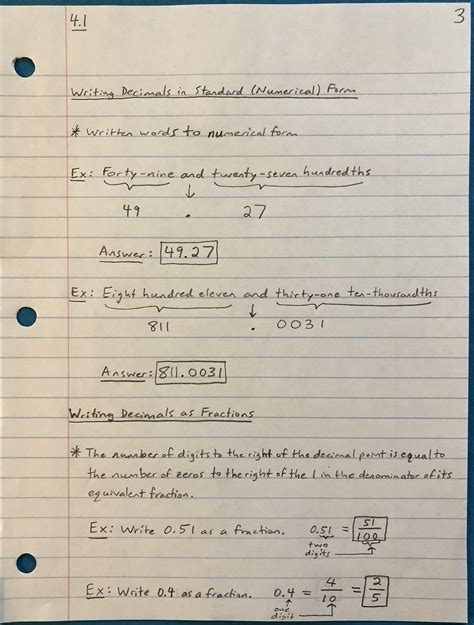 4.1
3
Writing Decimals in Standard (Numerical) Form
* Written words to numerical form
Ex: Forty-nine and twenty-seven hundredths
49 . 27
Answer: 49.27
Ex: Eight hundred eleven and thirty-one ten-thousandths
811 . 0031
Answer: 811.0031
Writing Decimals as Fractions
* The number of digits to the right of the decimal point is equal to
the number of zeros to the right of the 1 in the denominator of its
equivalent fraction.
Ex: Write 0.51 as a fraction. 0.51 = 51/100
two
digits
Ex: Write 0.4 as a fraction. 0.4 = 4/10 = 2/5
one
digit